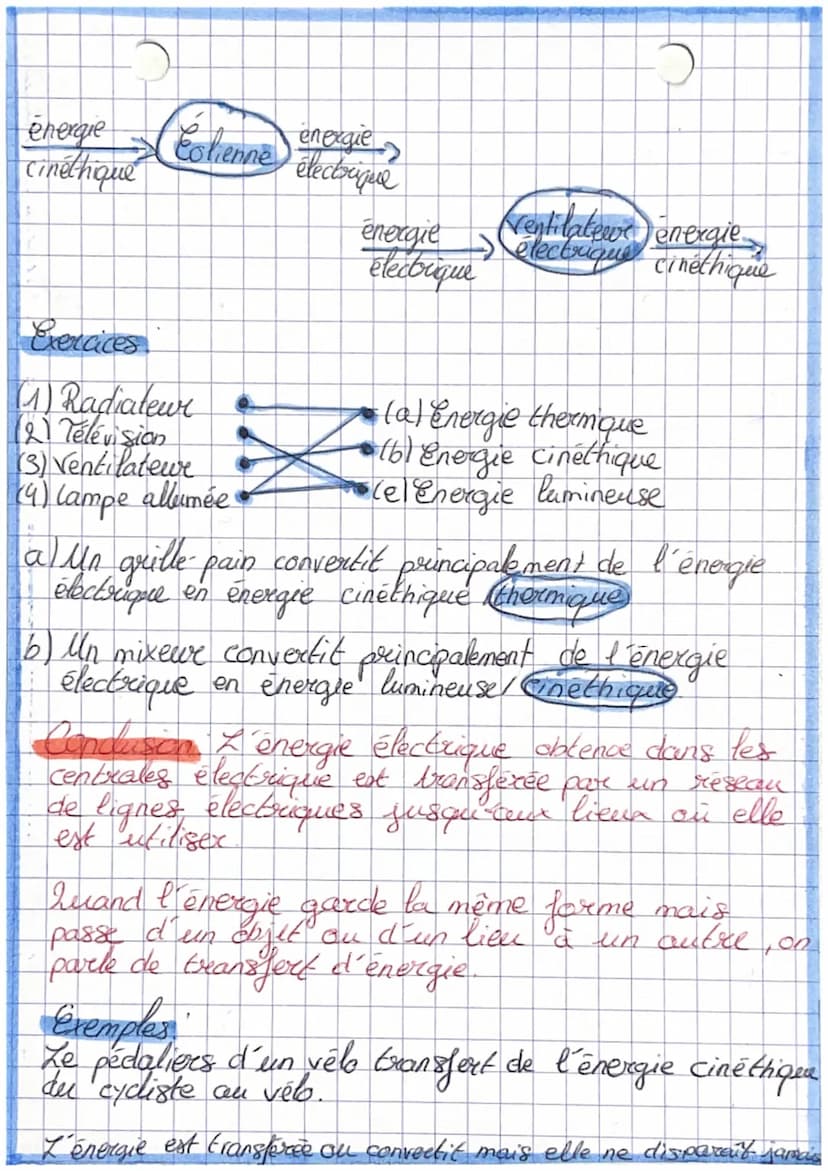 énergie
cinéthique
Éolienne
énergie
électrique
énergie
électrique
ventilateur
électrique
énergie
cinéthique
Exercices:
(1) Radiateur
(2) Télévision
(3) Ventilateur
(4) lampe allumée
(a) Energie thermique
(b) Energie cinéthique
(e) Energie lumineuse
a) Un grille-pain convertit principalement de l'énergie
électrique en énergie cinéthique /thermique
b) Un mixeur convertit principalement de l'énergie
électrique en énergie lumineuse/ cinéthique
Conclusion: L'énergie électrique obtenue dans les
centrales électrique est transférée par un réseau
de lignes électriques jusqu'aux lieux où elle
est utiliser.
Quand l'énergie garde la même forme mais
passe d'un objet ou d'un lieu à un autre, on
parle de transfert d'énergie.
Exemples:
Le pédaliers d'un vélo transfert de l'énergie cinéthique
du cycliste au vélo.
L'énergie est transférée ou convertit mais elle ne disparaît jamais